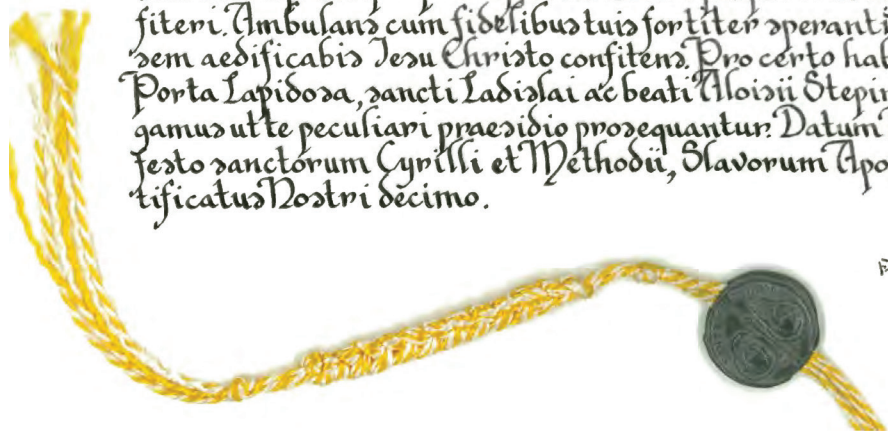 fiteri. Ambulans cum fidelibus tuis fortiter speranti
sem aedificabis Jesu Christo confitens. Pro certo hab
Porta Lapidosa, sancti Ladislai ac beati Aloisii Stepin
gamus ut te peculiari praesidio prosequantur. Datum
festo sanctorum Cyrilli et Methodii, Slavorum Apo
tificatus Nostri decimo.